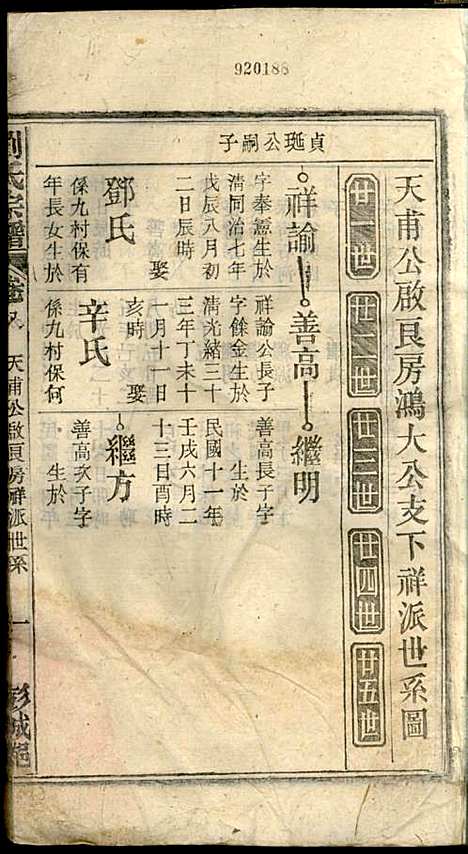 920188
天甫公啟艮房鴻大公支下祥派世系圖
廿一世
廿二世
廿三世
廿四世
廿五世
貞珽公嗣子
祥諭
字奉憲生於
清同治七年
戊辰八月初
二日辰時
娶
鄧氏
係九村保有
年長女生於
善高
祥諭公長子
字餘金生於
清光緒三十
三年丁未十
一月十一日
亥時 娶
辛氏
係九村保何
繼明
善高長子字
生於
民國十一年
壬戌六月二
十三日酉時
繼方
善高次子字
生於
劉氏宗譜
天甫公啟艮房祥派世系
一
彭城